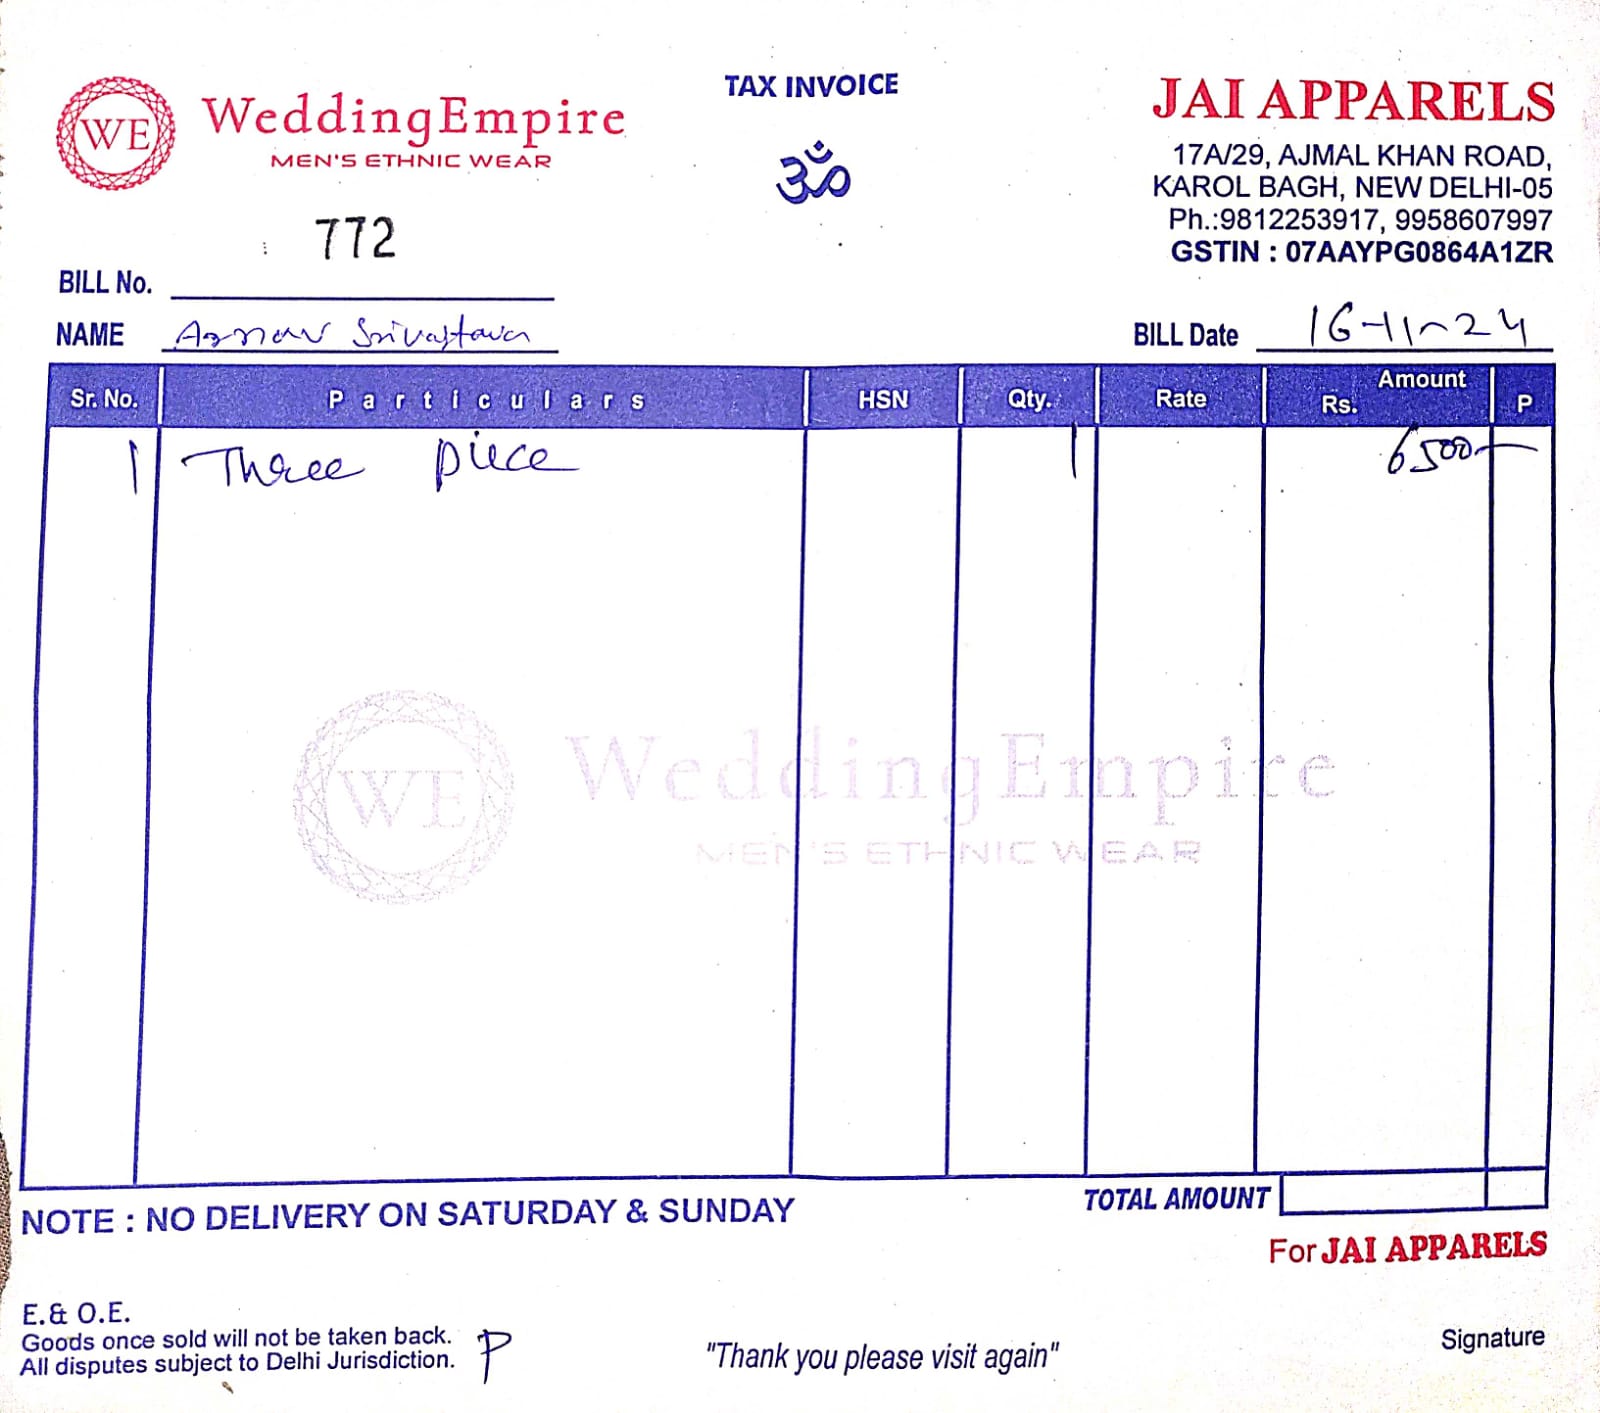 WE
WeddingEmpire
MEN'S ETHNIC WEAR
TAX INVOICE
ॐ
JAI APPARELS
17A/29, AJMAL KHAN ROAD,
KAROL BAGH, NEW DELHI-05
Ph.:9812253917, 9958607997
GSTIN : 07AAYPG0864A1ZR
BILL No. 772
NAME Arnav Srivastava
BILL Date 16-11-24
Sr. No. Particulars HSN Qty. Rate Amount Rs. P
1 Three piece 1 6500-
WE
WeddingEmpire
MEN'S ETHNIC WEAR
TOTAL AMOUNT
NOTE : NO DELIVERY ON SATURDAY & SUNDAY
For JAI APPARELS
E.& O.E.
Goods once sold will not be taken back.
All disputes subject to Delhi Jurisdiction.
P
"Thank you please visit again"
Signature